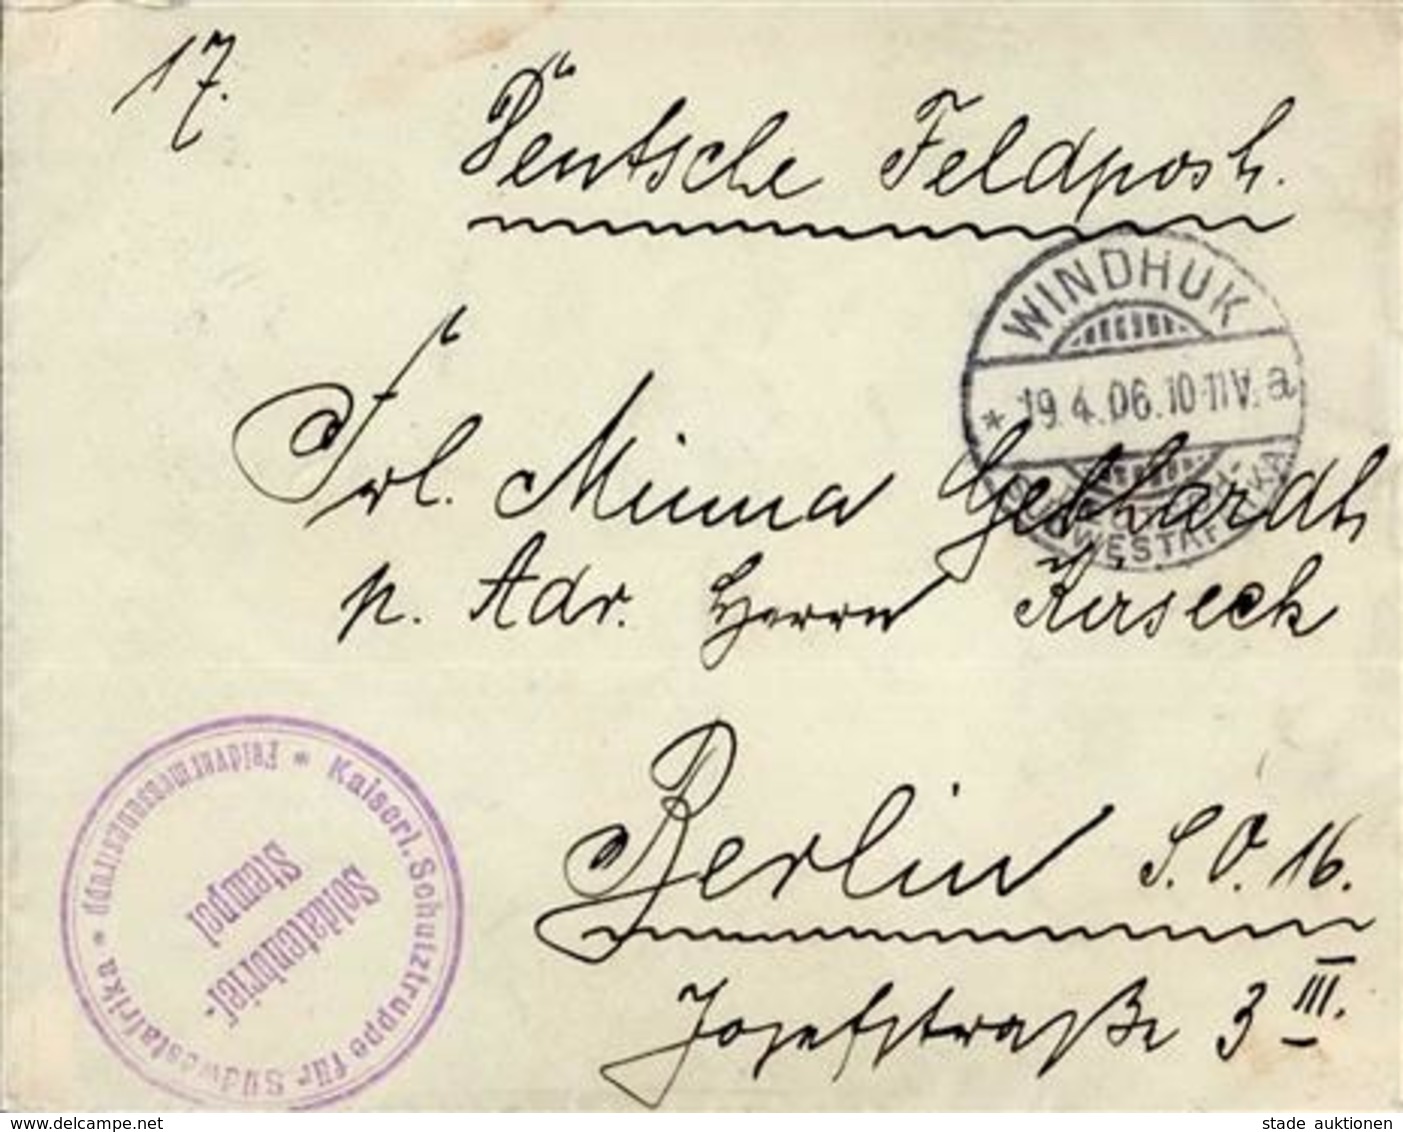 17.
Deutsche Feldpost.
WINDHUK
* 19.4.06.10-11V. a
DEUTSCH-
SÜDWESTAFRIKA
Frl. Minna Gebhardt
p. Adr. Herrn Kirseck
Kaiserl. Schutztruppe für Südwestafrika * Feldvermessungstrupp *
Soldatenbrief-
Stempel
Berlin S.O. 16.
Josefstraße 3 III.
www.delcampe.net
stade auktionen